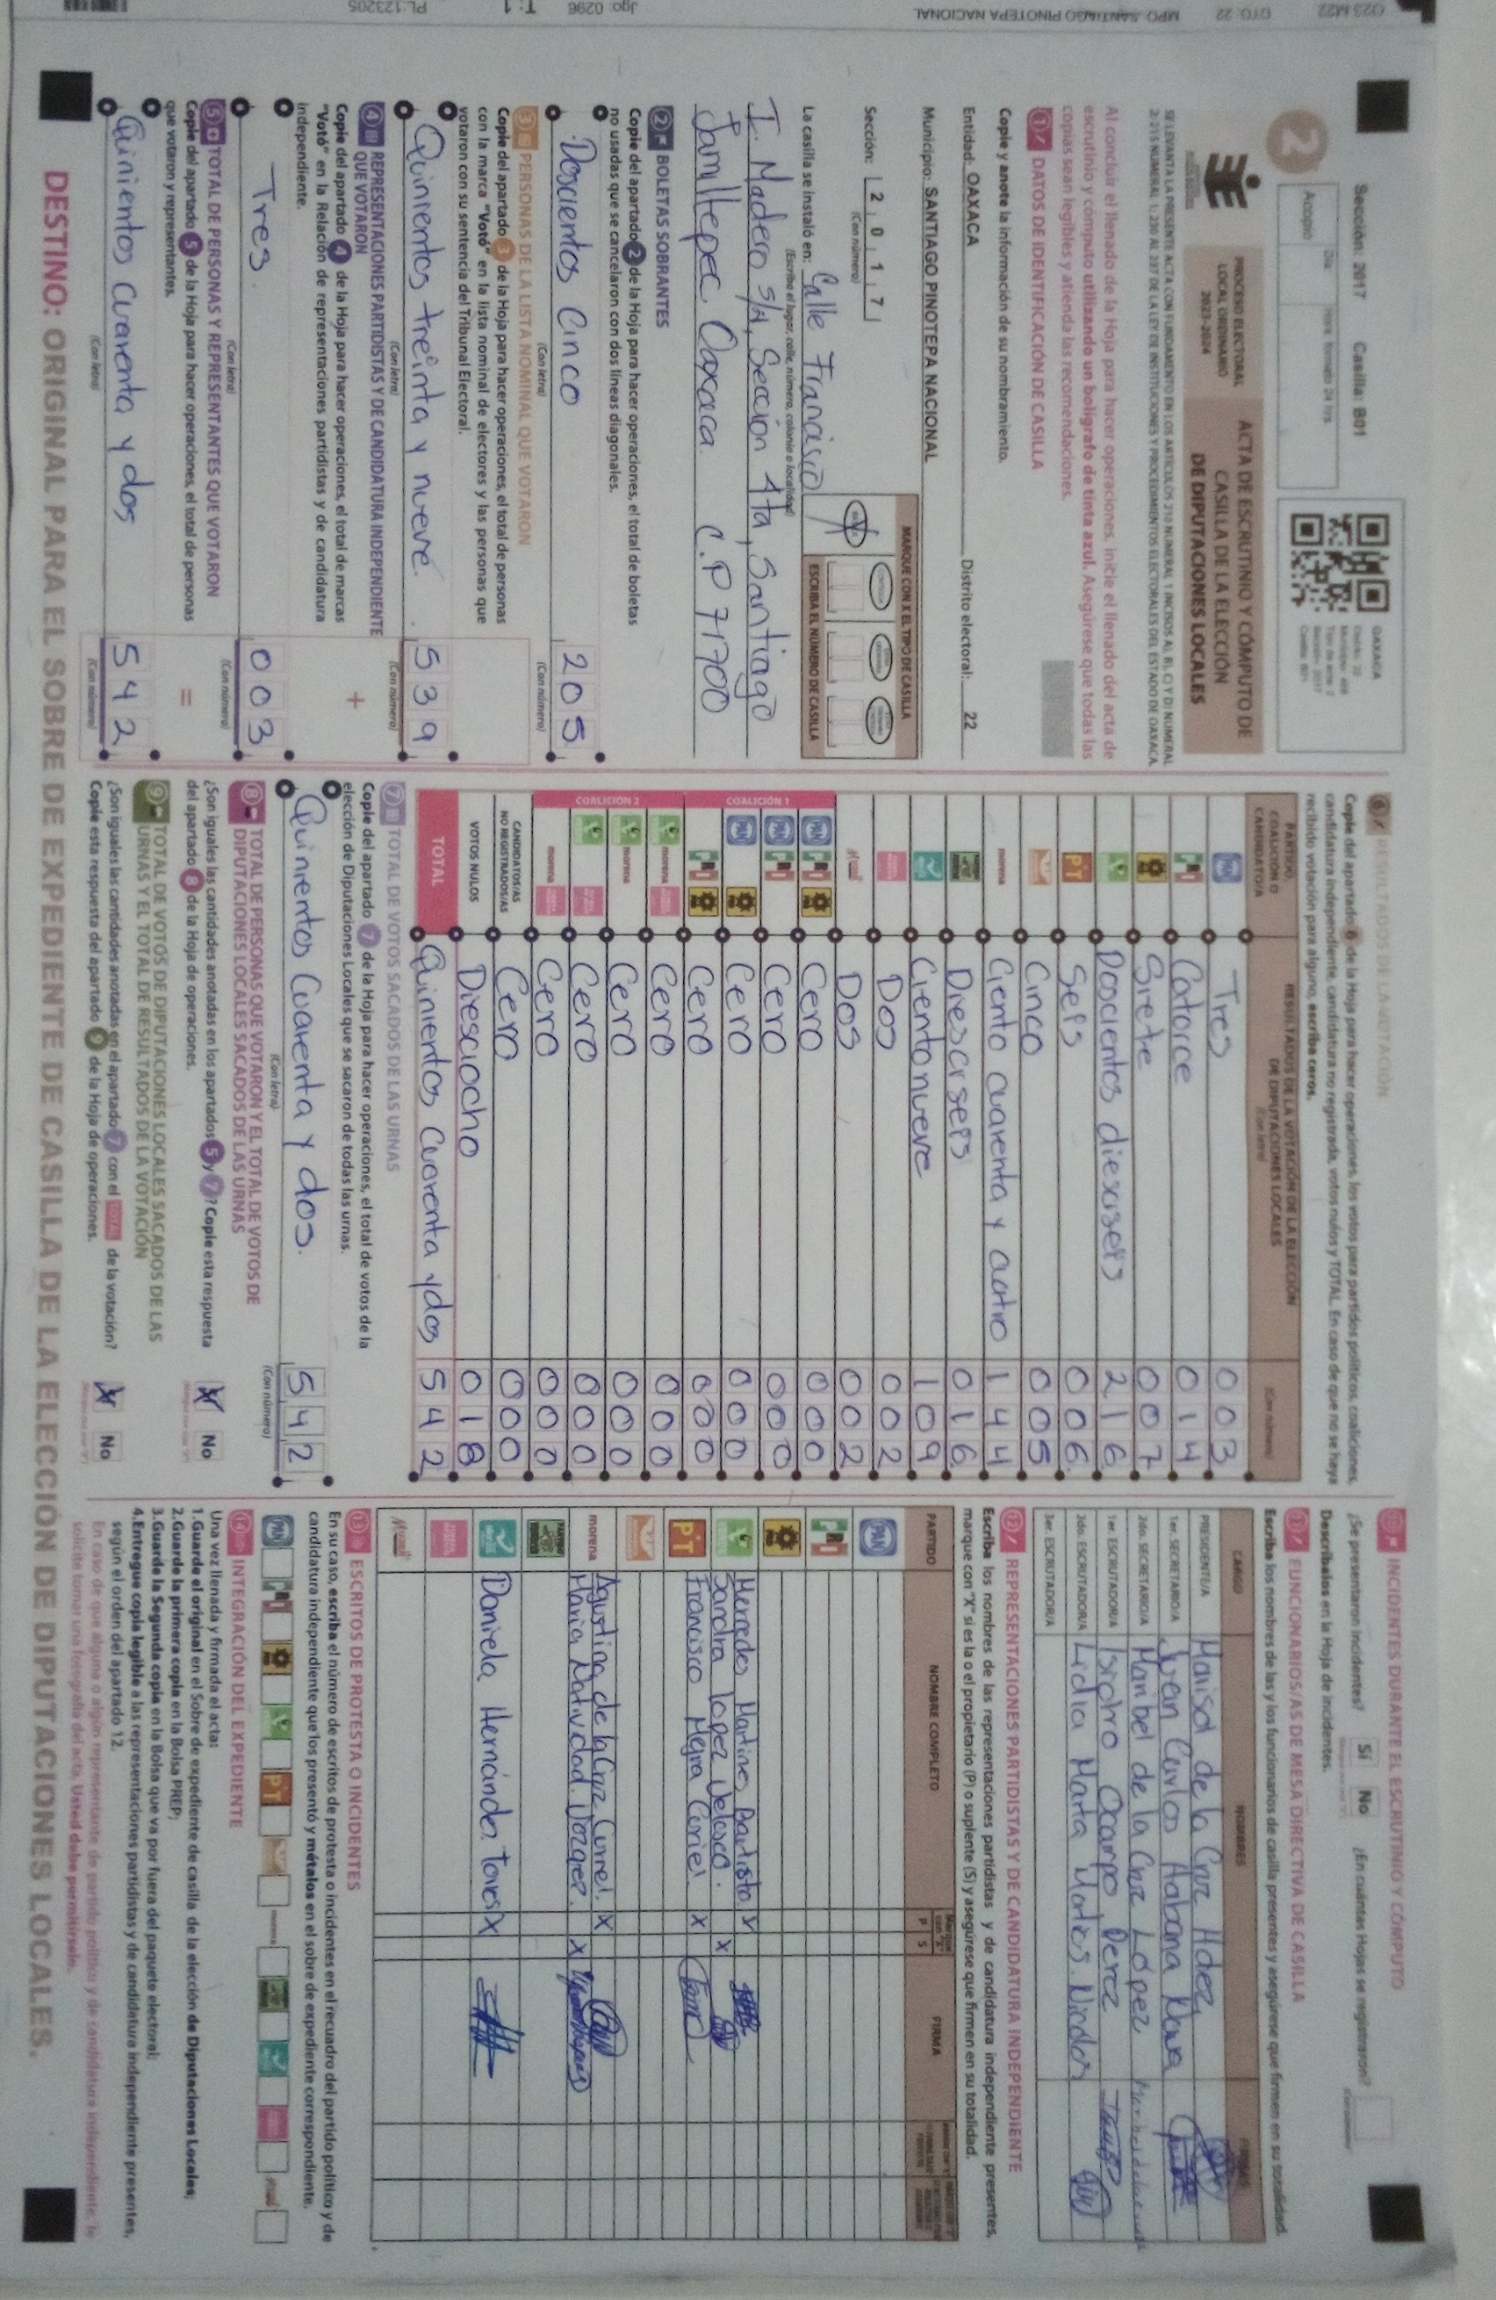 O23 M22 DTO: 22 MPO: SANTIAGO PINOTEPA NACIONAL Jgo: 0296 T: 1 PL:123205
Sección: 2017 Casilla: B01
2
Acopio
OAXACA
PROCESO ELECTORAL
LOCAL ORDINARIO
2023-2024
ACTA DE ESCRUTINIO Y CÓMPUTO DE
CASILLA DE LA ELECCIÓN
DE DIPUTACIONES LOCALES
SE LEVANTA LA PRESENTE ACTA CON FUNDAMENTO EN LOS ARTÍCULOS 210 NUMERAL 1 INCISOS A), B), C) Y D) NUMERAL
2; 215 NUMERAL 1; 230 AL 237 DE LA LEY DE INSTITUCIONES Y PROCEDIMIENTOS ELECTORALES DEL ESTADO DE OAXACA.
Al concluir el llenado de la Hoja para hacer operaciones, inicie el llenado del acta de
escrutinio y cómputo utilizando un bolígrafo de tinta azul. Asegúrese que todas las
copias sean legibles y atienda las recomendaciones.
1 DATOS DE IDENTIFICACIÓN DE CASILLA
Copie y anote la información de su nombramiento.
Entidad: OAXACA Distrito electoral: 22
Municipio: SANTIAGO PINOTEPA NACIONAL
Sección: 2 0 1 7
(Con número)
MARQUE CON X EL TIPO DE CASILLA
ESCRIBA EL NÚMERO DE CASILLA
La casilla se instaló en: Calle Francisco
(Escriba el lugar, calle, número, colonia o localidad)
I. Madero S/N, Sección 4ta, Santiago
Jamiltepec, Oaxaca C.P 71700
2 BOLETAS SOBRANTES
Copie del apartado 2 de la Hoja para hacer operaciones, el total de boletas
no usadas que se cancelaron con dos líneas diagonales.
Doscientos Cinco 205
(Con letra) (Con número)
3 PERSONAS DE LA LISTA NOMINAL QUE VOTARON
Copie del apartado 3 de la Hoja para hacer operaciones, el total de personas
con la marca "Votó" en la lista nominal de electores y las personas que
votaron con su sentencia del Tribunal Electoral.
Quinientos treinta y nueve. 539
(Con letra) (Con número)
4 REPRESENTACIONES PARTIDISTAS Y DE CANDIDATURA INDEPENDIENTE
QUE VOTARON
Copie del apartado 4 de la Hoja para hacer operaciones, el total de marcas
"Votó" en la Relación de representaciones partidistas y de candidatura
independiente.
+
Tres. 003
(Con letra) (Con número)
5 TOTAL DE PERSONAS Y REPRESENTANTES QUE VOTARON
Copie del apartado 5 de la Hoja para hacer operaciones, el total de personas
que votaron y representantes.
=
Quinientos cuarenta y dos 542
(Con letra) (Con número)
Copie del apartado 6 de la Hoja para hacer operaciones, los votos para partidos políticos, coaliciones,
candidatura independiente, candidatura no registrada, votos nulos y TOTAL. En caso de que no se haya
recibido votación para alguno, escriba ceros.
PARTIDO, COALICIÓN O CANDIDATO/A
RESULTADOS DE LA VOTACIÓN DE LA ELECCIÓN
DE DIPUTACIONES LOCALES
(Con letra) (Con número)
PAN Tres 003
PRI Catorce 014
PRD Siete 007
Doscientos dieciseis 216
PT Seis 006.
Cinco 005
morena Ciento cuarenta y cuatro 144
Dieciseis 016
Ciento nueve 109
Dos 002
Dos 002
COALICIÓN 1
PAN PRI PRD Cero 000
PAN PRI Cero 000
PAN PRD Cero 000
PRI PRD Cero 000
COALICIÓN 2
morena Cero 000
morena Cero 000
Cero 000
morena Cero 000
CANDIDATOS/AS
NO REGISTRADOS/AS Cero 000
VOTOS NULOS Diesciocho 018
TOTAL Quinientos Cuarenta y dos 542
7 TOTAL DE VOTOS SACADOS DE LAS URNAS
Copie del apartado 7 de la Hoja para hacer operaciones, el total de votos de la
elección de Diputaciones Locales que se sacaron de todas las urnas.
Quinientos Cuarenta y dos. 542
(Con letra) (Con número)
8 TOTAL DE PERSONAS QUE VOTARON Y EL TOTAL DE VOTOS DE
DIPUTACIONES LOCALES SACADOS DE LAS URNAS
¿Son iguales las cantidades anotadas en los apartados 5 y 7? Copie esta respuesta
del apartado 8 de la Hoja de operaciones.
X No
9 TOTAL DE VOTOS DE DIPUTACIONES LOCALES SACADOS DE LAS
URNAS Y EL TOTAL DE RESULTADOS DE LA VOTACIÓN
¿Son iguales las cantidades anotadas en el apartado 7 con el TOTAL de la votación?
Copie esta respuesta del apartado 9 de la Hoja de operaciones.
X No
10 INCIDENTES DURANTE EL ESCRUTINIO Y CÓMPUTO
¿Se presentaron incidentes? Sí No ¿En cuántas Hojas se registraron?
Descríbalos en la Hoja de incidentes.
11 FUNCIONARIOS/AS DE MESA DIRECTIVA DE CASILLA
Escriba los nombres de las y los funcionarios de casilla presentes y asegúrese que firmen en su totalidad.
CARGO NOMBRES FIRMAS
PRESIDENTE/A Marisol de la Cruz Hdez
1er. SECRETARIO/A Juan Carlos Habana
2do. SECRETARIO/A Maribel de la Cruz López
1er. ESCRUTADOR/A Isidro Ocampo Perez
2do. ESCRUTADOR/A Lidia Marta
3er. ESCRUTADOR/A
12 REPRESENTACIONES PARTIDISTAS Y DE CANDIDATURA INDEPENDIENTE
Escriba los nombres de las representaciones partidistas y de candidatura independiente presentes,
marque con "X" si es la o el propietario (P) o suplente (S) y asegúrese que firmen en su totalidad.
PARTIDO NOMBRE COMPLETO P S FIRMA
PAN
PRI
PRD
Mercedes Martinez Bautista X
Sandra lopez Velasco. X
PT Francisco Mejia Curiel X
morena Agustina de la Cruz Curiel. X
Maria Natividad X
Daniela Hernández Torres X
13 ESCRITOS DE PROTESTA O INCIDENTES
En su caso, escriba el número de escritos de protesta o incidentes en el recuadro del partido político y de
candidatura independiente que los presentó y métalos en el sobre de expediente correspondiente.
14 INTEGRACIÓN DEL EXPEDIENTE
Una vez llenada y firmada el acta:
1.Guarde el original en el Sobre de expediente de casilla de la elección de Diputaciones Locales;
2.Guarde la primera copia en la Bolsa PREP;
3.Guarde la Segunda copia en la Bolsa que va por fuera del paquete electoral;
4.Entregue copia legible a las representaciones partidistas y de candidatura independiente presentes,
según el orden del apartado 12.
En caso de que alguna o algún representante de partido político y de candidatura independiente, le
solicite tomar una fotografía del acta, Usted debe permitírselo.
DESTINO: ORIGINAL PARA EL SOBRE DE EXPEDIENTE DE CASILLA DE LA ELECCIÓN DE DIPUTACIONES LOCALES.